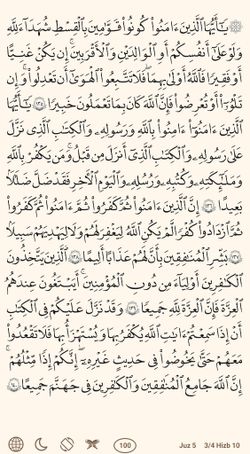 يَٰٓأَيُّهَا ٱلَّذِينَ ءَامَنُوا۟ كُونُوا۟ قَوَّٰمِينَ بِٱلْقِسْطِ شُهَدَآءَ لِلَّهِ
وَلَوْ عَلَىٰٓ أَنفُسِكُمْ أَوِ ٱلْوَٰلِدَيْنِ وَٱلْأَقْرَبِينَ ۚ إِن يَكُنْ غَنِيًّا
أَوْ فَقِيرًا فَٱللَّهُ أَوْلَىٰ بِهِمَا ۖ فَلَا تَتَّبِعُوا۟ ٱلْهَوَىٰٓ أَن تَعْدِلُوا۟ ۚ وَإِن
تَلْوُۥٓا۟ أَوْ تُعْرِضُوا۟ فَإِنَّ ٱللَّهَ كَانَ بِمَا تَعْمَلُونَ خَبِيرًا ۝١٣٥ يَٰٓأَيُّهَا
ٱلَّذِينَ ءَامَنُوٓا۟ ءَامِنُوا۟ بِٱللَّهِ وَرَسُولِهِۦ وَٱلْكِتَٰبِ ٱلَّذِى نَزَّلَ
عَلَىٰ رَسُولِهِۦ وَٱلْكِتَٰبِ ٱلَّذِىٓ أَنزَلَ مِن قَبْلُ ۚ وَمَن يَكْفُرْ بِٱللَّهِ
وَمَلَٰٓئِكَتِهِۦ وَكُتُبِهِۦ وَرُسُلِهِۦ وَٱلْيَوْمِ ٱلْءَاخِرِ فَقَدْ ضَلَّ ضَلَٰلًۢا
بَعِيدًا ۝١٣٦ إِنَّ ٱلَّذِينَ ءَامَنُوا۟ ثُمَّ كَفَرُوا۟ ثُمَّ ءَامَنُوا۟ ثُمَّ كَفَرُوا۟
ثُمَّ ٱزْدَادُوا۟ كُفْرًا لَّمْ يَكُنِ ٱللَّهُ لِيَغْفِرَ لَهُمْ وَلَا لِيَهْدِيَهُمْ سَبِيلًۢا
۝١٣٧ بَشِّرِ ٱلْمُنَٰفِقِينَ بِأَنَّ لَهُمْ عَذَابًا أَلِيمًا ۝١٣٨ ٱلَّذِينَ يَتَّخِذُونَ
ٱلْكَٰفِرِينَ أَوْلِيَآءَ مِن دُونِ ٱلْمُؤْمِنِينَ ۚ أَيَبْتَغُونَ عِندَهُمُ
ٱلْعِزَّةَ فَإِنَّ ٱلْعِزَّةَ لِلَّهِ جَمِيعًا ۝١٣٩ وَقَدْ نَزَّلَ عَلَيْكُمْ فِى ٱلْكِتَٰبِ
أَنْ إِذَا سَمِعْتُمْ ءَايَٰتِ ٱللَّهِ يُكْفَرُ بِهَا وَيُسْتَهْزَأُ بِهَا فَلَا تَقْعُدُوا۟
مَعَهُمْ حَتَّىٰ يَخُوضُوا۟ فِى حَدِيثٍ غَيْرِهِۦٓ ۚ إِنَّكُمْ إِذًا مِّثْلُهُمْ ۗ
إِنَّ ٱللَّهَ جَامِعُ ٱلْمُنَٰفِقِينَ وَٱلْكَٰفِرِينَ فِى جَهَنَّمَ جَمِيعًا ۝١٤٠
100 Juz 5 3/4 Hizb 10